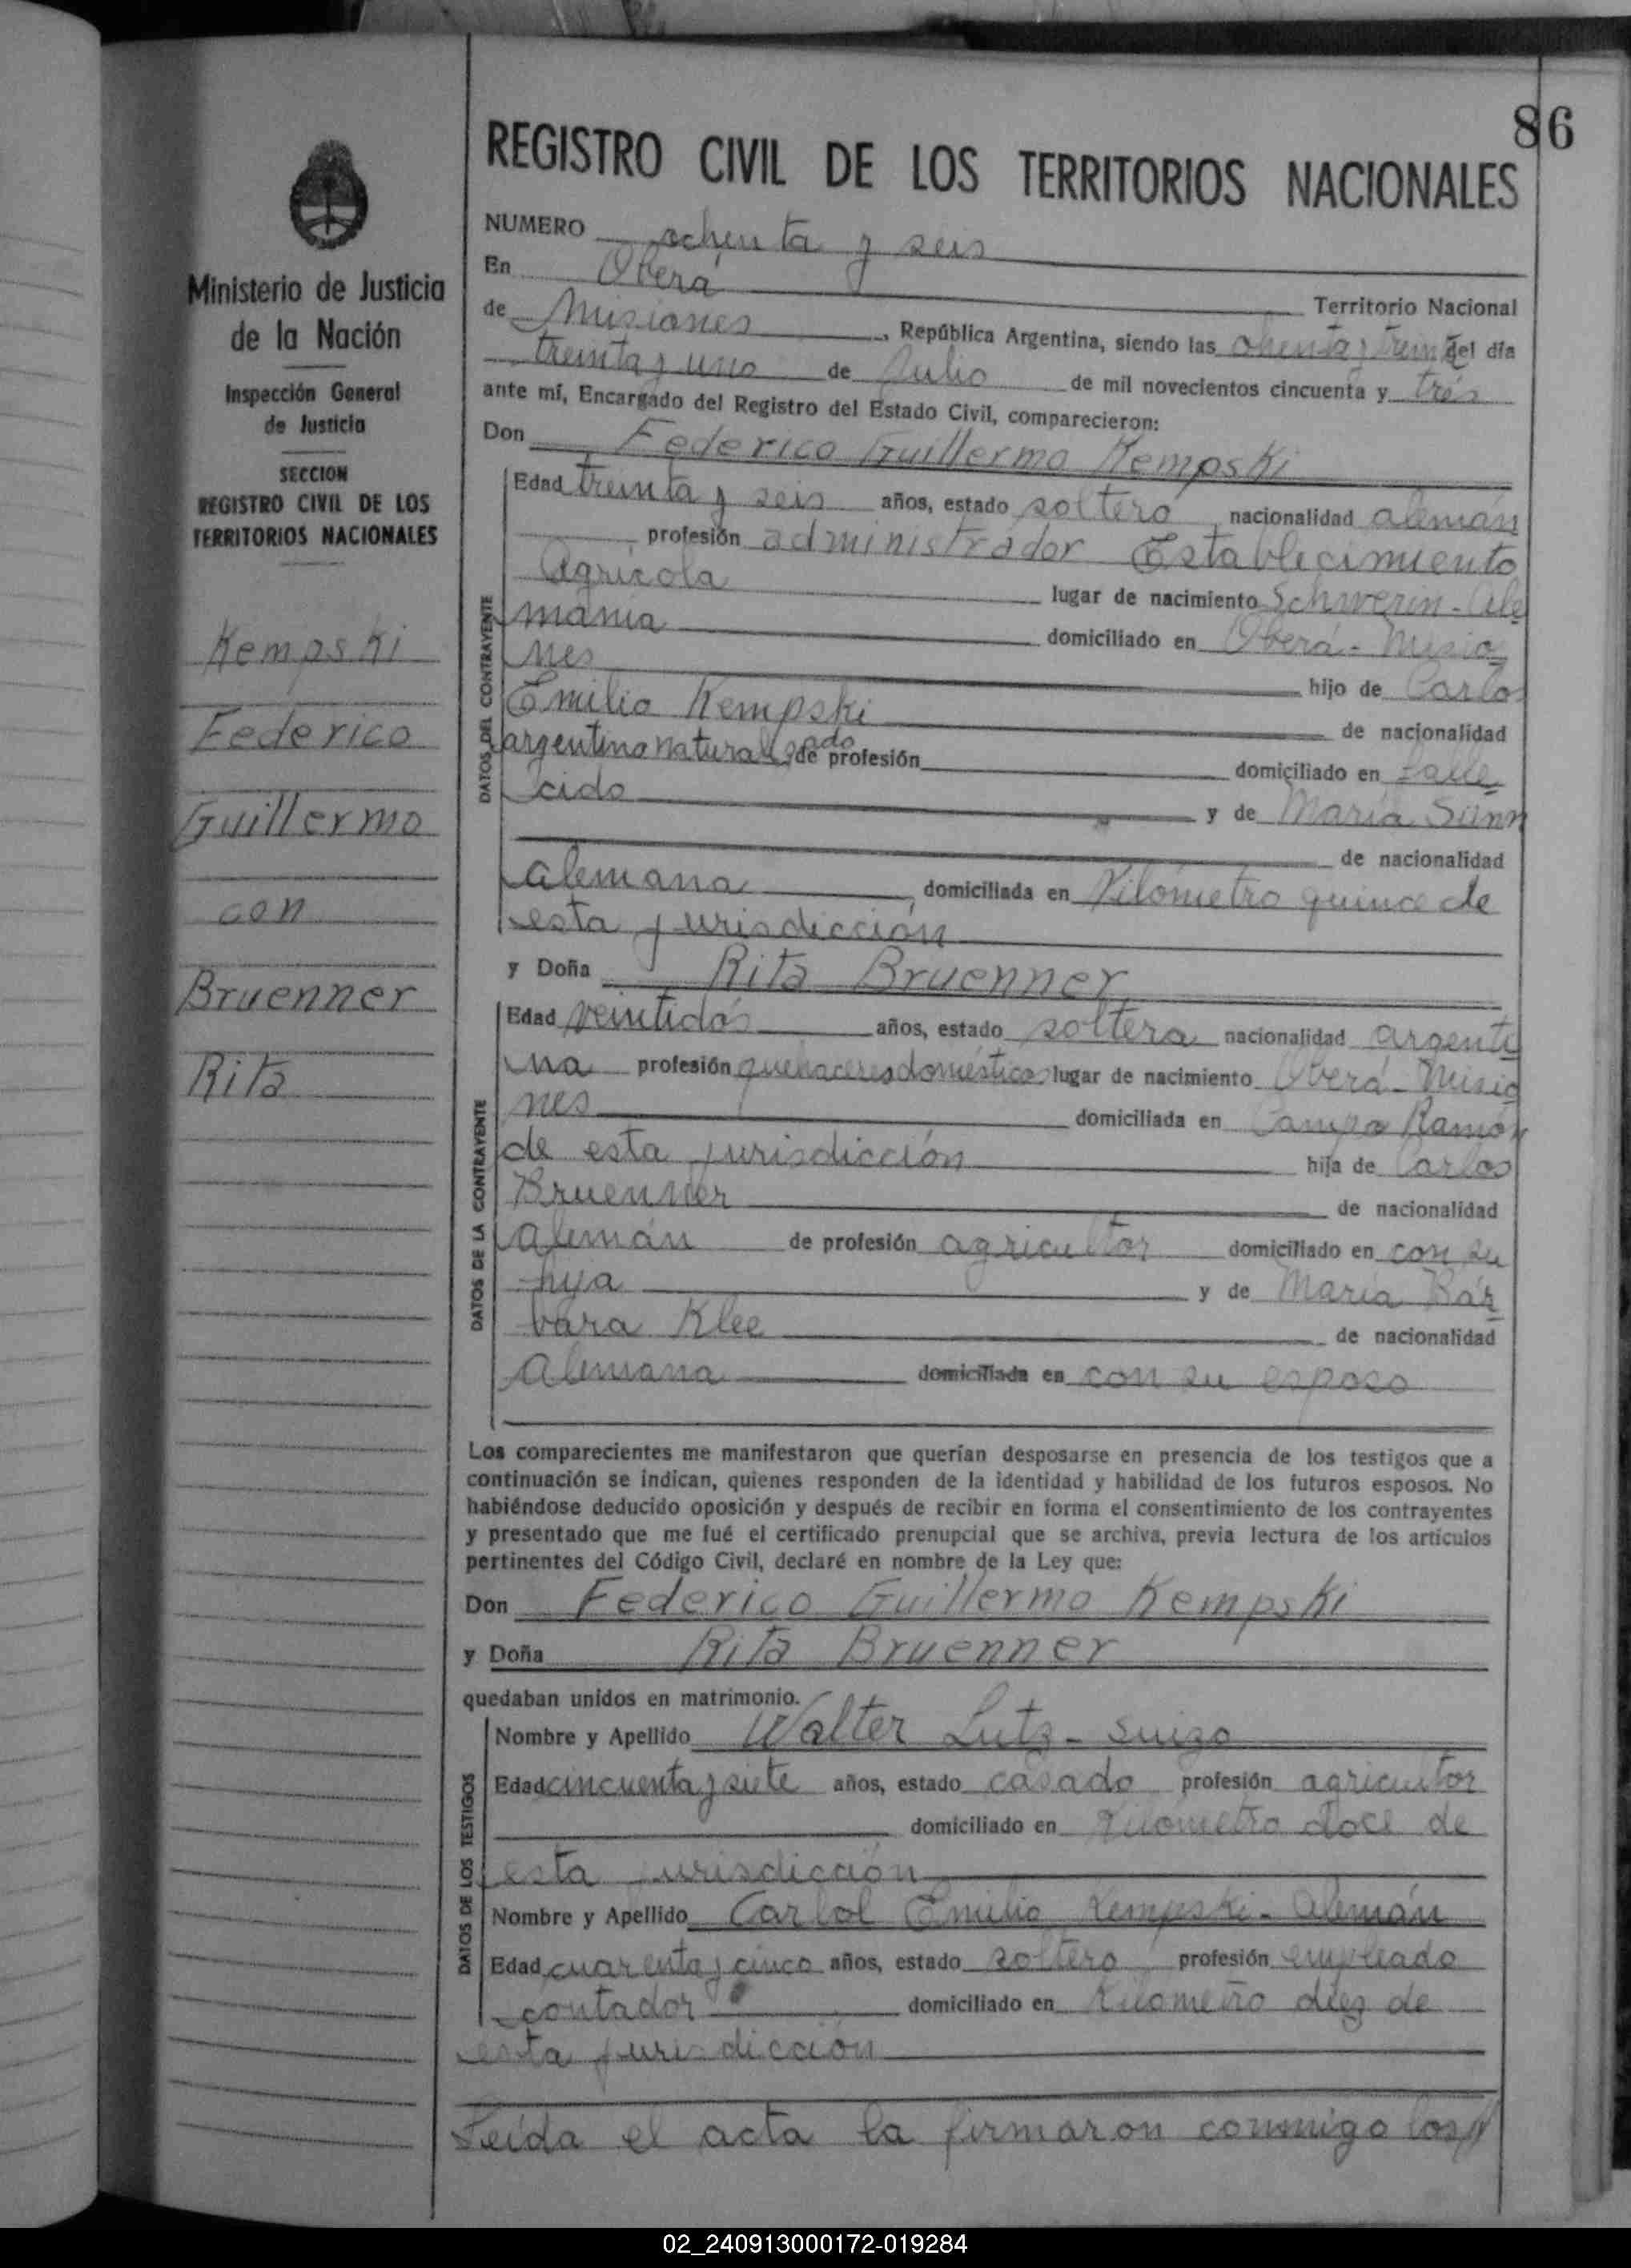 86
REGISTRO CIVIL DE LOS TERRITORIOS NACIONALES
Ministerio de Justicia
de la Nación
Inspección General
de Justicia
SECCION
REGISTRO CIVIL DE LOS
TERRITORIOS NACIONALES
Kempski
Federico
Guillermo
con
Bruenner
Rita
NUMERO ochenta y seis
En Oberá Territorio Nacional
de Misiones, República Argentina, siendo las del día
treinta y uno de Julio de mil novecientos cincuenta y trés
ante mí, Encargado del Registro del Estado Civil, comparecieron:
Don Federico Guillermo Kempski
DATOS DEL CONTRAYENTE
Edad treinta y seis años, estado soltero, nacionalidad alemán
profesión administrador Establecimiento
Agricola lugar de nacimiento Schwerin - Ale
mania domiciliado en Oberá - Misio
nes hijo de Carlos
Emilio Kempski de nacionalidad
argentino naturalizado de profesión domiciliado en falle
cido y de María Sünn
de nacionalidad
alemana, domiciliada en Kilómetro quince de
esta jurisdicción
y Doña Rita Bruenner
DATOS DE LA CONTRAYENTE
Edad veintidós años, estado soltera nacionalidad argenti
na profesión quehaceres domésticos lugar de nacimiento Oberá - Misio
nes domiciliada en Campo Ramón
de esta jurisdicción hija de Carlos
Bruenner de nacionalidad
alemán de profesión agricultor domiciliado en con su
hija y de María Bár
bara Klee de nacionalidad
alemana domiciliada en con su esposo
Los comparecientes me manifestaron que querían desposarse en presencia de los testigos que a
continuación se indican, quienes responden de la identidad y habilidad de los futuros esposos. No
habiéndose deducido oposición y después de recibir en forma el consentimiento de los contrayentes
y presentado que me fué el certificado prenupcial que se archiva, previa lectura de los artículos
pertinentes del Código Civil, declaré en nombre de la Ley que:
Don Federico Guillermo Kempski
y Doña Rita Bruenner
quedaban unidos en matrimonio.
DATOS DE LOS TESTIGOS
Nombre y Apellido Walter Lutz - suizo
Edad cincuenta y siete años, estado casado profesión agricultor
domiciliado en Kilometro doce de
esta jurisdicción
Nombre y Apellido Carlol Emilio Kempski - Alemán
Edad cuarenta y cinco años, estado soltero profesión empleado
contador domiciliado en Kilometro diez de
esta jurisdicción
Leída el acta la firmaron conmigo los//
02_240913000172-019284